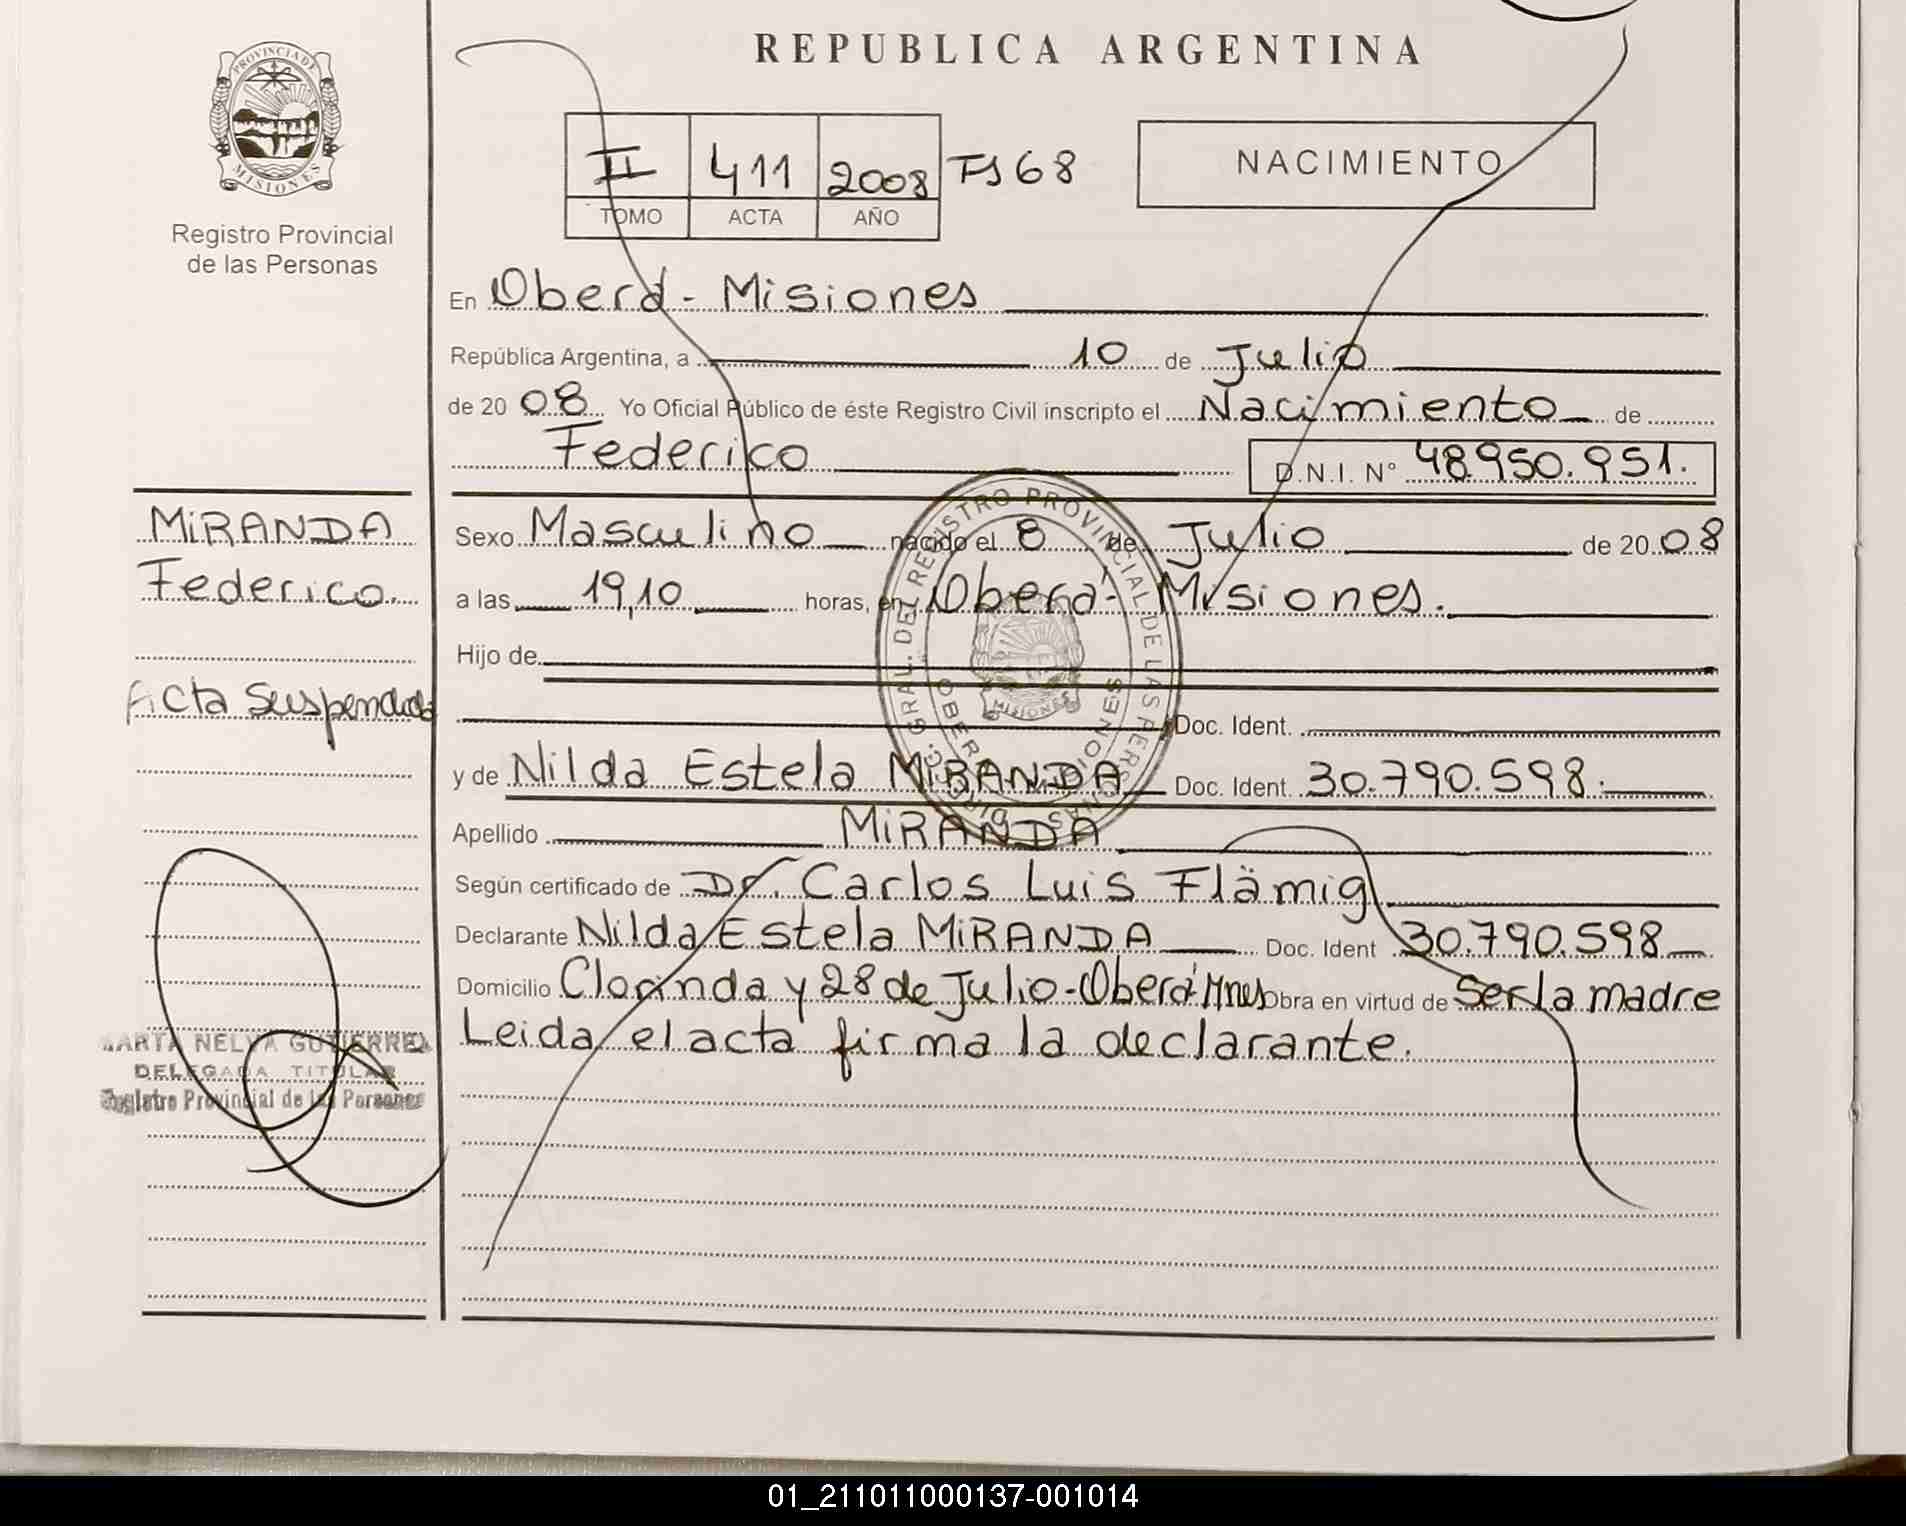 REPUBLICA ARGENTINA
PROVINCIA DE
MISIONES
Registro Provincial
de las Personas
II 411 2008 Fs 68
TOMO ACTA AÑO
NACIMIENTO
En Oberá - Misiones
República Argentina, a 10 de Julio
de 20 08 Yo Oficial Público de éste Registro Civil inscripto el Nacimiento de
Federico D.N.I. N° 48.950.951.
MiRANDA
Federico.
Acta Suspendida
Sexo Masculino nacido el 8 de Julio de 20 08
a las 19,10 horas, en Oberá - Misiones.
Hijo de
Doc. Ident.
y de Nilda Estela MiRANDA Doc. Ident. 30.790.598.
Apellido MiRANDA
Según certificado de Dr. Carlos Luis Flämig
Declarante Nilda Estela MiRANDA Doc. Ident 30.790.598
Domicilio Clorinda y 28 de Julio - Oberá Mnes Obra en virtud de Ser la madre
Leida el acta firma la declarante.
MARTA NELVA GUTIERREZ
DELEGADA TITULAR
Registro Provincial de las Personas
GRAL. DEL REGISTRO PROVINCIAL DE LAS PERSONAS
MISIONES
01_211011000137-001014